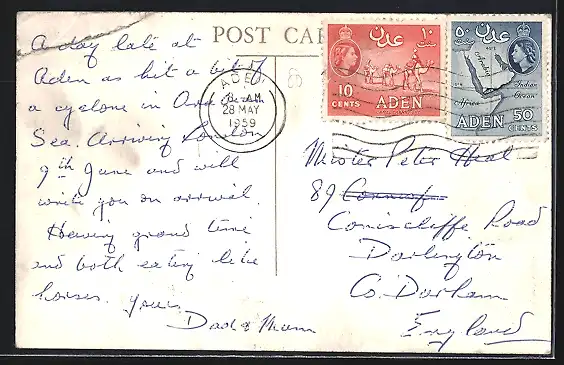 POST CAR
A day late at
Aden as hit a bit of
a cyclone in Arabian
Sea. Arriving London
9th June and will
write you on arrival.
Having grand time
and both eating like
horses. Yours
Dad & Mum
ADEN
28 MAY
1959
عدن
١٠
10
CENTS
ADEN
٥٠
عدن
Arabia
Africa
Indian
Ocean
ADEN
50
CENTS
Master Peter Heal
89
Coniscliffe Road
Darlington
Co. Durham
England